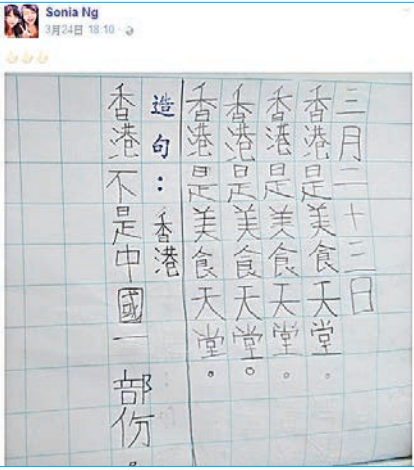 Sonia Ng
3月24日 18:10 ·
三月二十三日
香港是美食天堂。
香港是美食天堂。
香港是美食天堂。
香港是美食天堂。
造句：香港
香港不是中國一部份。